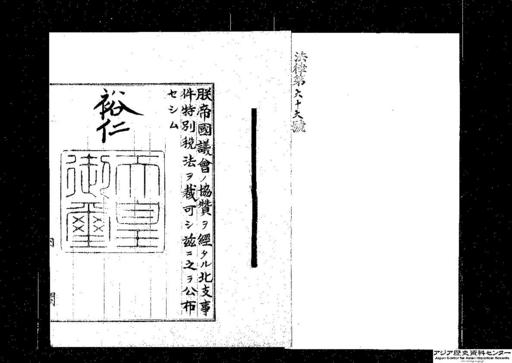 法律第六十六號
朕帝國議會ノ協贊ヲ經タル北支事
件特別税法ヲ裁可シ茲ニ之ヲ公布
セシム
裕仁
天皇
御璽
アジア歴史資料センター
Japan Center for Asian Historical Records